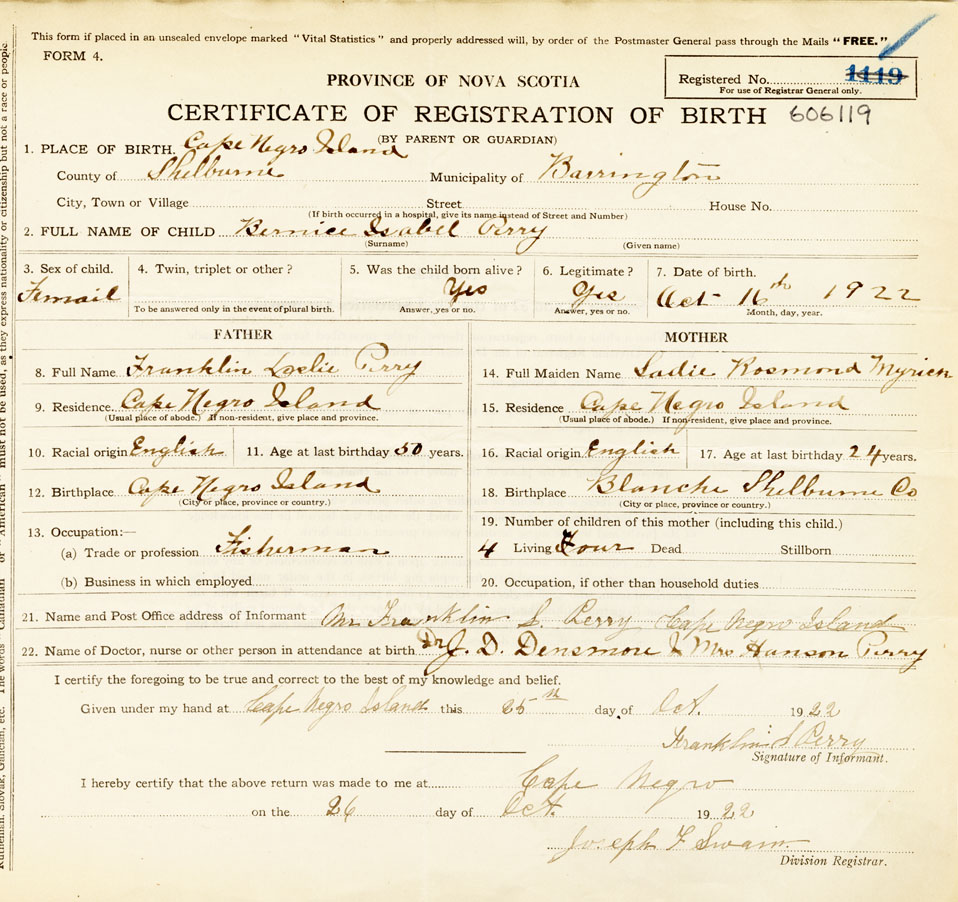 This form if placed in an unsealed envelope marked "Vital Statistics" and properly addressed will, by order of the Postmaster General pass through the Mails "FREE."
FORM 4.
PROVINCE OF NOVA SCOTIA
Registered No. 1119
For use of Registrar General only.
CERTIFICATE OF REGISTRATION OF BIRTH 606119
(BY PARENT OR GUARDIAN)
1. PLACE OF BIRTH. Cape Negro Island
County of Shelburne Municipality of Barrington
City, Town or Village Street House No.
(If birth occurred in a hospital, give its name instead of Street and Number)
2. FULL NAME OF CHILD Bernice Isabel Perry
(Surname) (Given name)
3. Sex of child. 4. Twin, triplet or other? 5. Was the child born alive? 6. Legitimate? 7. Date of birth.
Femail Yes Yes Oct 16th 1922
To be answered only in the event of plural birth. Answer, yes or no. Answer, yes or no. Month, day, year.
FATHER MOTHER
8. Full Name Franklin Leslie Perry 14. Full Maiden Name Sadie Rosmond Myrick
9. Residence Cape Negro Island 15. Residence Cape Negro Island
(Usual place of abode.) If non-resident, give place and province. (Usual place of abode.) If non-resident, give place and province.
10. Racial origin English 11. Age at last birthday 30 years. 16. Racial origin English 17. Age at last birthday 24 years.
12. Birthplace Cape Negro Island 18. Birthplace Blanche Shelburne Co
(City or place, province or country.) (City or place, province or country.)
13. Occupation:— 19. Number of children of this mother (including this child.)
(a) Trade or profession Fisherman 4 Living Four Dead Stillborn
(b) Business in which employed 20. Occupation, if other than household duties
21. Name and Post Office address of Informant Mr Franklin S. Perry Cape Negro Island
22. Name of Doctor, nurse or other person in attendance at birth Dr J. D. Densmore & Mrs Hanson Perry
I certify the foregoing to be true and correct to the best of my knowledge and belief.
Given under my hand at Cape Negro Island this 25th day of Oct. 1922
Franklin S Perry
Signature of Informant.
I hereby certify that the above return was made to me at Cape Negro
on the 26 day of Oct. 1922
Joseph F Swain
Division Registrar.
Ruthenian, Slovak, Galician, etc. The words "Canadian" or "American" must not be used, as they express nationality or citizenship but not a race or people